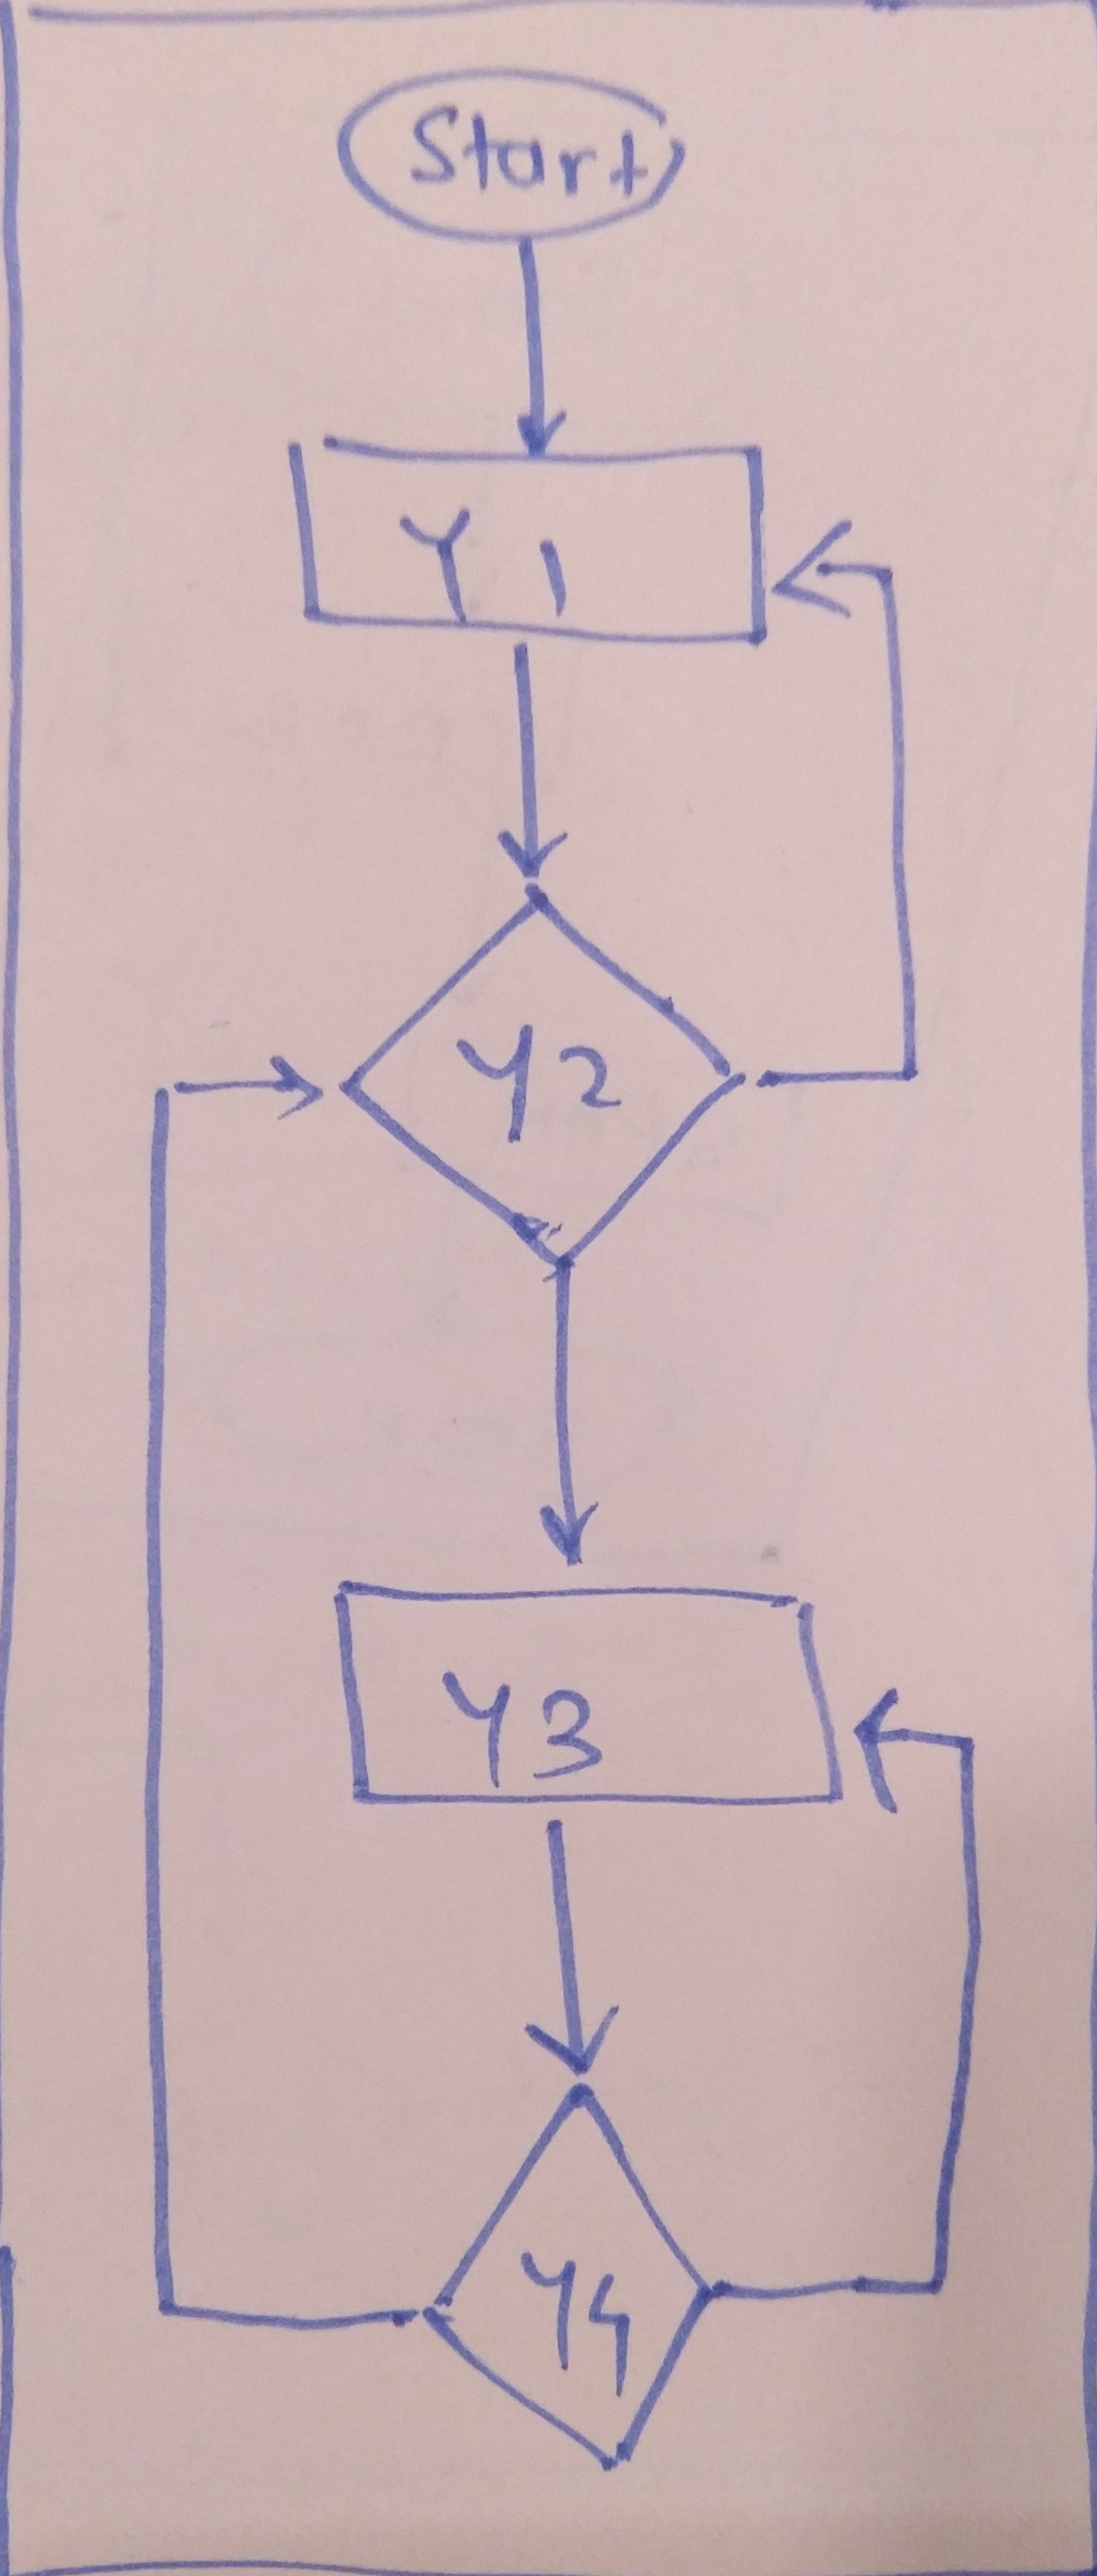 Start
Y1
Y2
Y3
Y4